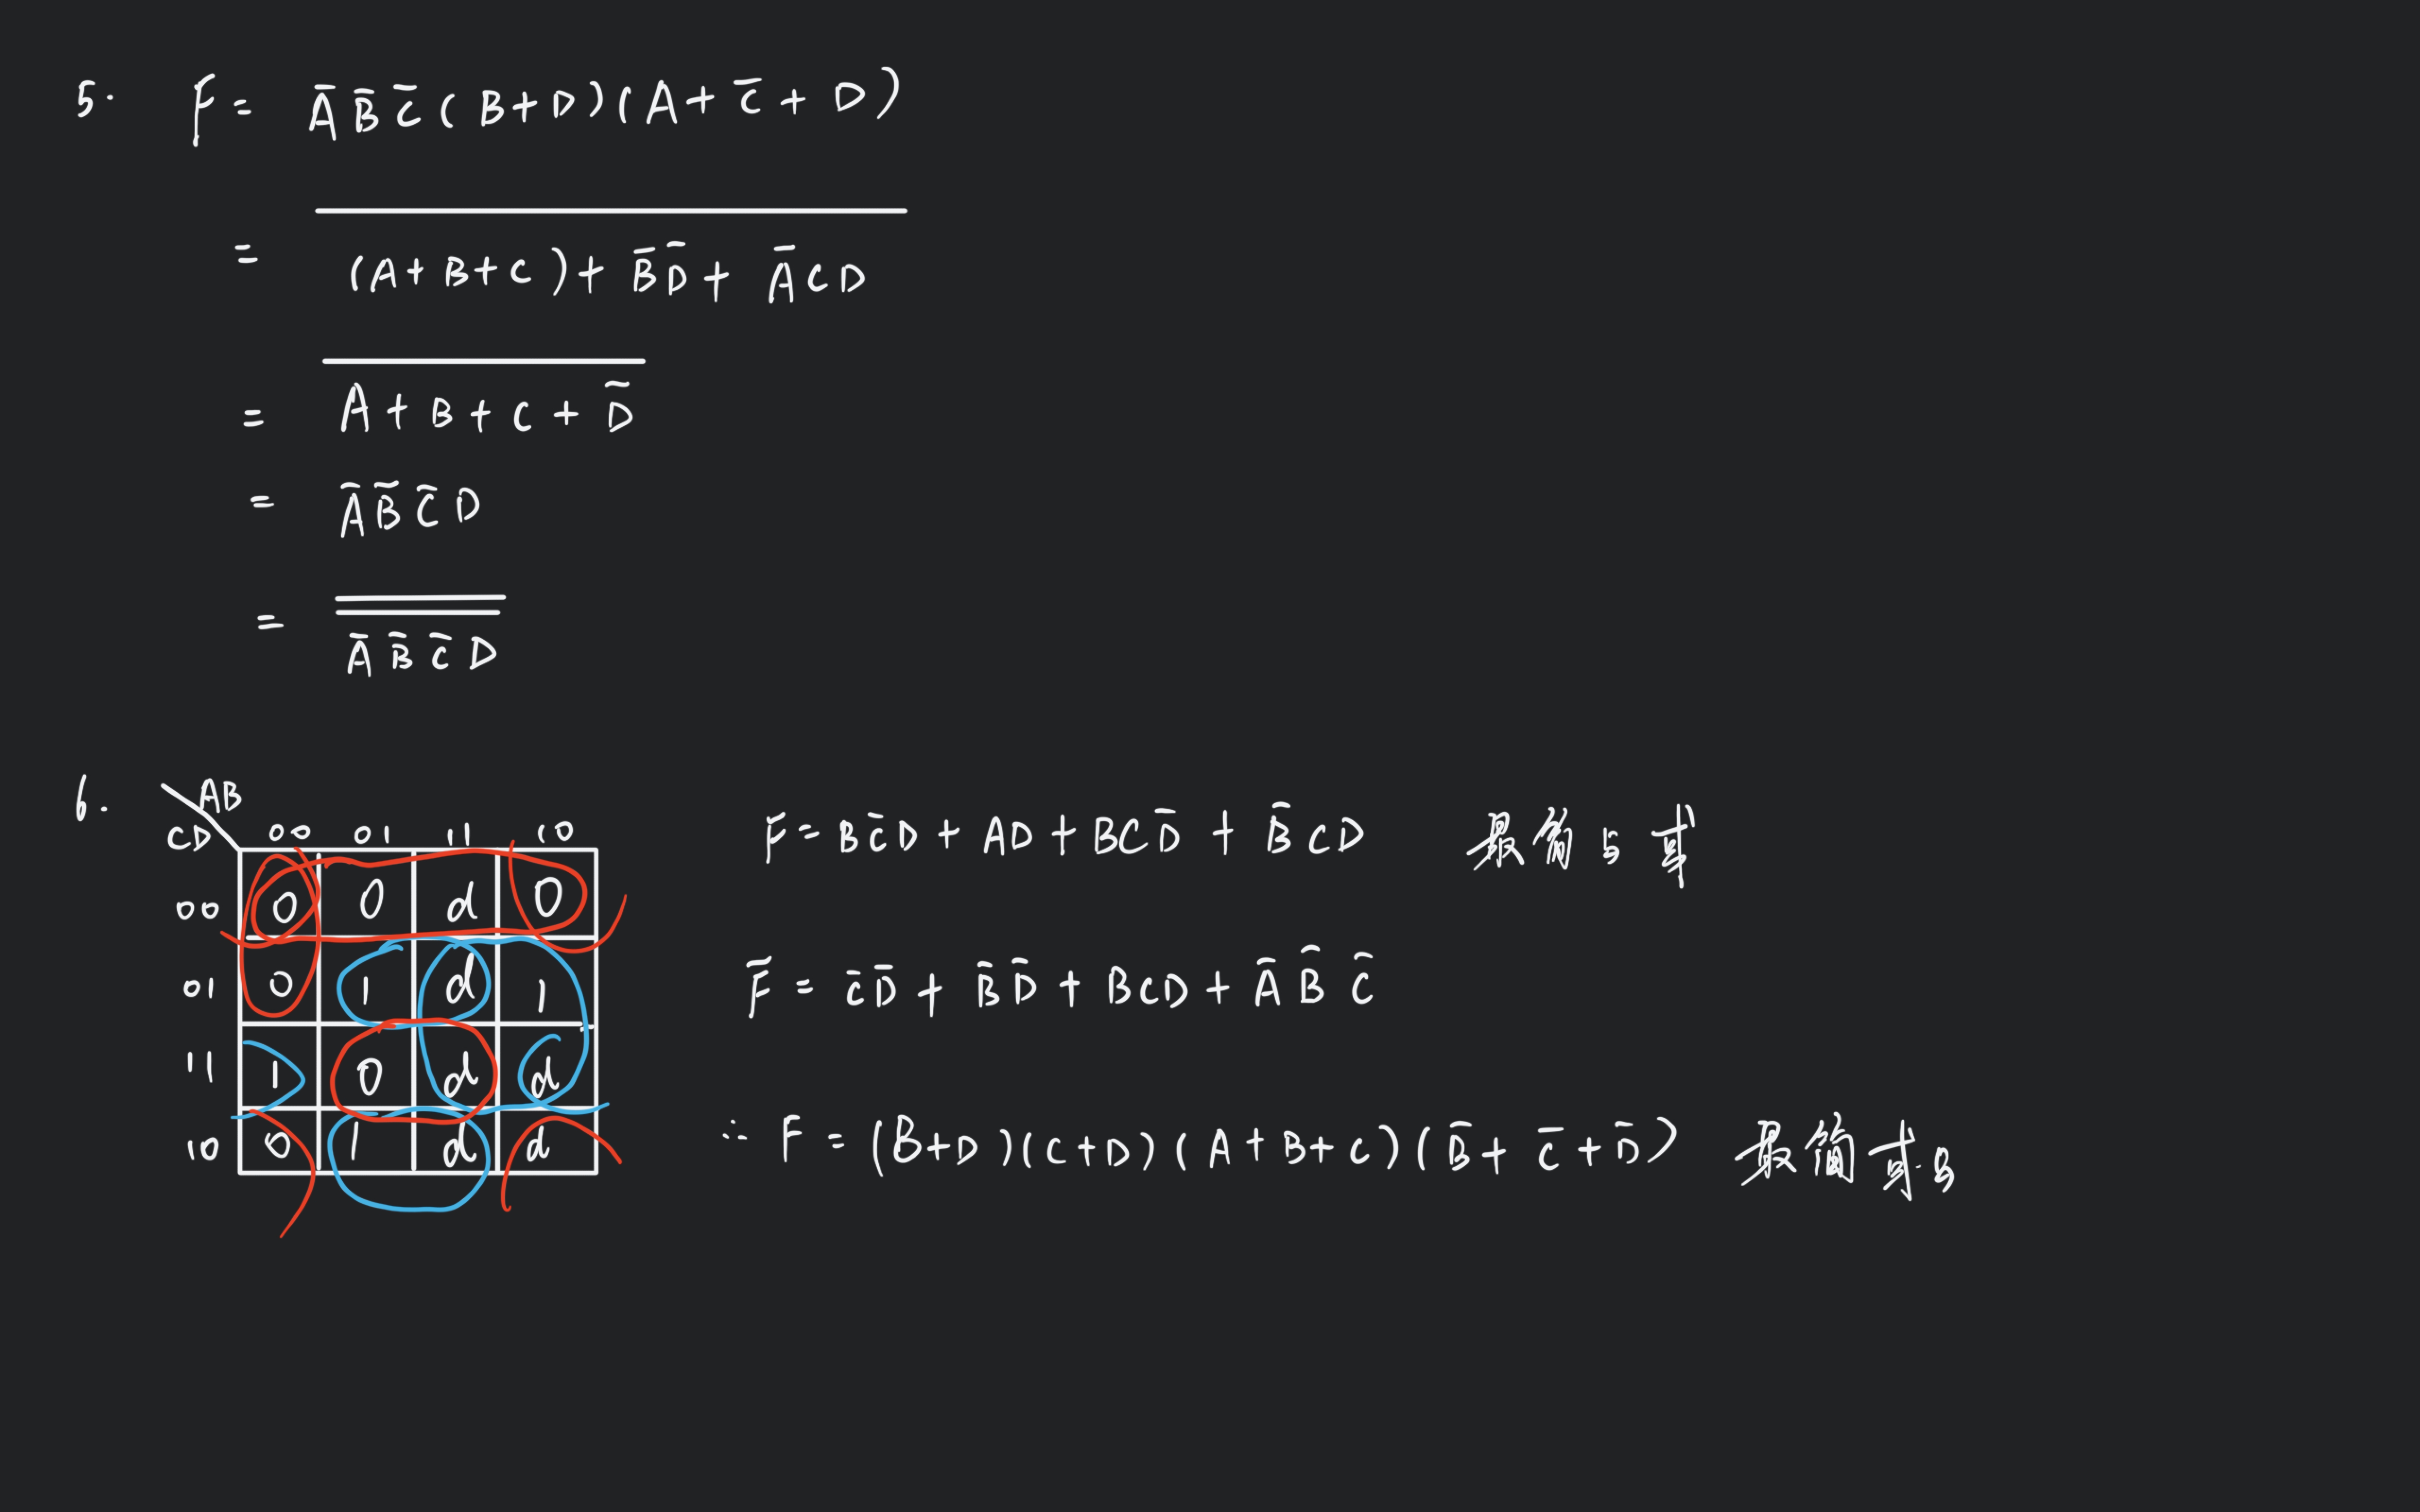 5. F = A̅ B̅ C̅ ( B+D ) ( A + C̅ + D )
= \overline{(A+B+C) + B̅ D̅ + A̅ C D}
= \overline{A + B + C + D̅}
= A̅ B̅ C̅ D
= \overline{\overline{A̅ B̅ C̅ D}}
6. AB
CD 00 01 11 10
00 0 0 d 0
01 0 1 d 1
11 1 0 d d
10 0 1 d d
F = B C̅ D + AD + BC D̅ + B̅ C D 最简与或
F̅ = C̅ D̅ + B̅ D̅ + BCD + A̅ B̅ C̅
∴ F = (B+D)(C+D)(A+B+C)(B̅ + C̅ + D̅) 最简或与